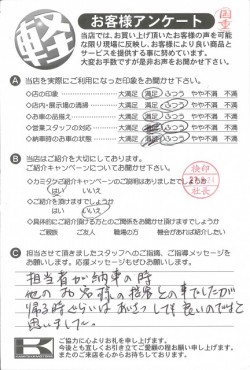 軽
お客様アンケート
当店では、お買い上げ頂いたお客様の声を可能
な限り現場に反映し、お客様により良い商品と
サービスを提供する事に努めています。
大変お手数ですが是非お声をお聞かせ下さい。
A 当店を実際にご利用になった印象をお聞かせ下さい。
◇店の印象 大満足 満足 ふつう やや不満 不満
◇店内・展示場の清掃 大満足 満足 ふつう やや不満 不満
◇お車の品揃え 大満足 満足 ふつう やや不満 不満
◇営業スタッフの対応 大満足 満足 ふつう やや不満 不満
◇納車時のお車の状態 大満足 満足 ふつう やや不満 不満
B 当店はご紹介を大切にしております。
ご紹介キャンペーンについてお聞かせ下さい。
◇カミタケご紹介キャンペーンのご説明はありましたでしょうか
はい いいえ
◇ご紹介を頂けますでしょうか
はい いいえ
◇具体的にご紹介頂ける方とのご関係をお聞かせ頂けますでしょうか
ご親族 ご友人 職場の方 機会があれば紹介したい
検印
社長
C 担当させて頂きましたスタッフへのご指摘、ご指導メッセージを
お願いします。応援メッセージもぜひお願いします。
担当者が納車の時
他のお客様の接客との事でしたが
帰る時ぐらいはあいさつしても良いのでは と
思いました。
K
ご協力に心よりお礼を申し上げます。
今後とも宜しくお引き立てご愛顧の程お願い申し上げます。
またのご来店を心からお待ちしております。